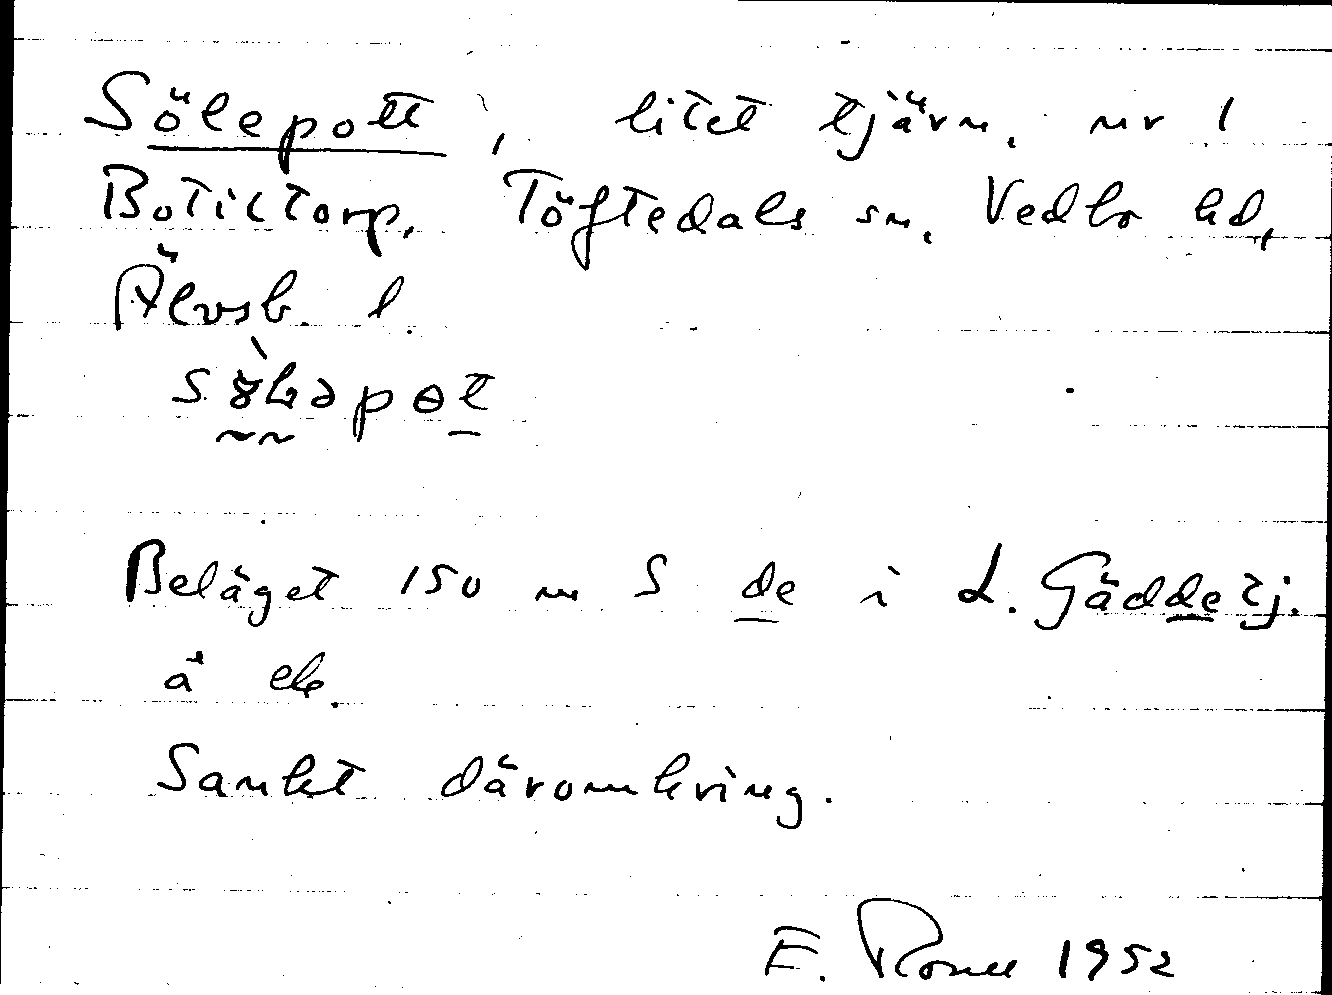 Sölepott, litet tjärn, nr 1
Botiltorp, Töftedals sn, Vedbo hd,
Älvsb. l.
Beläget 150 m S de i L. Gäddetj.
å ek.
Sankt däromkring.
E. Rosell 1952